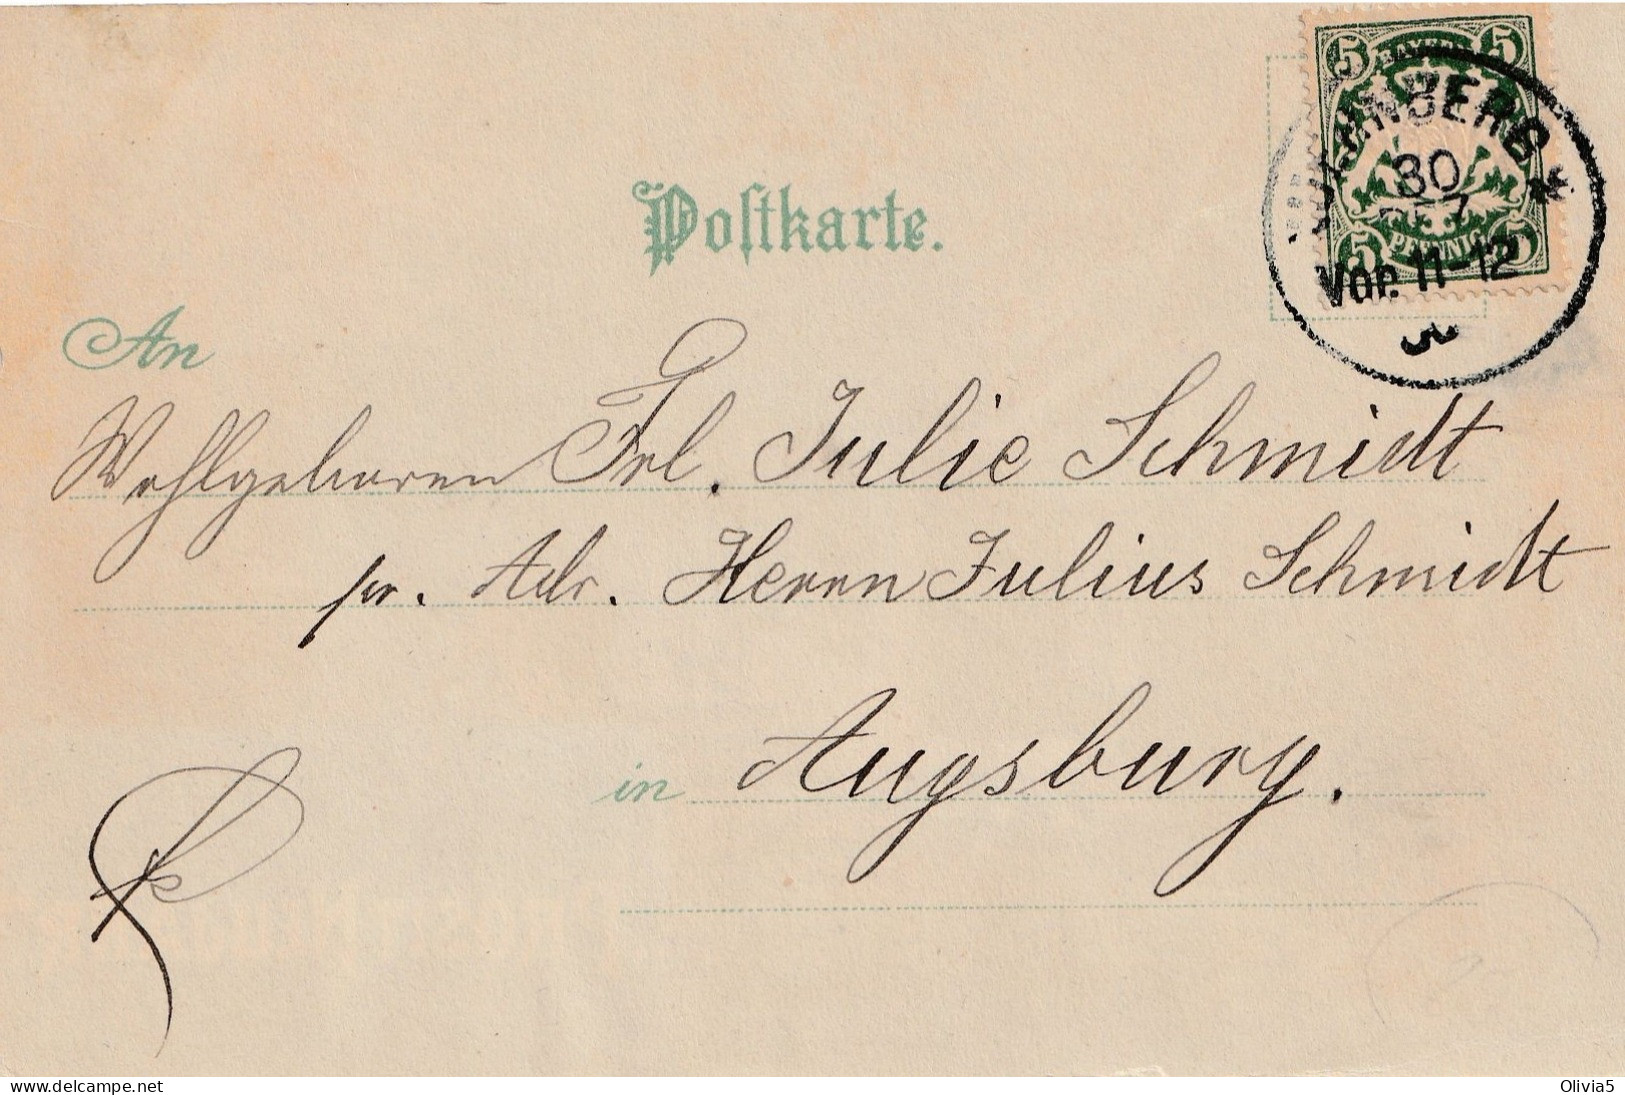 5 BAYERN 5
NÜRNBERG
30
DEZ
5 PFENNIG 5
Vor. 11-12
Postkarte.
An
Wohlgeboren Frl. Julie Schmidt
pr. Adr. Herrn Julius Schmidt
in Augsburg.
Olivia5